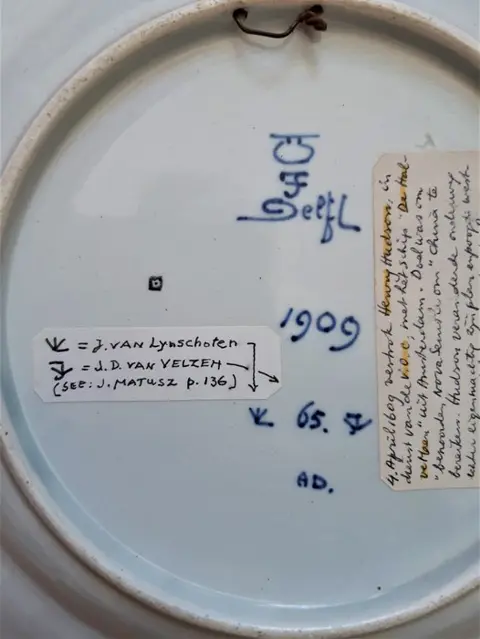 Delft
1909
65.
AD.
= J. VAN LYNSCHOTEN
= J. D. VAN VELZEN
(SEE: J. MATUSZ p. 136)
4. April 1609 vertrok Henry Hudson, in
dienst van de V.O.C., met het schip "De Hal-
ve Maen" uit Amsterdam. Doel was om
"benoorden Nova Sembla om" China te
bereiken. Hudson veranderde onderweg
echter eigenmachtig zijn plan en